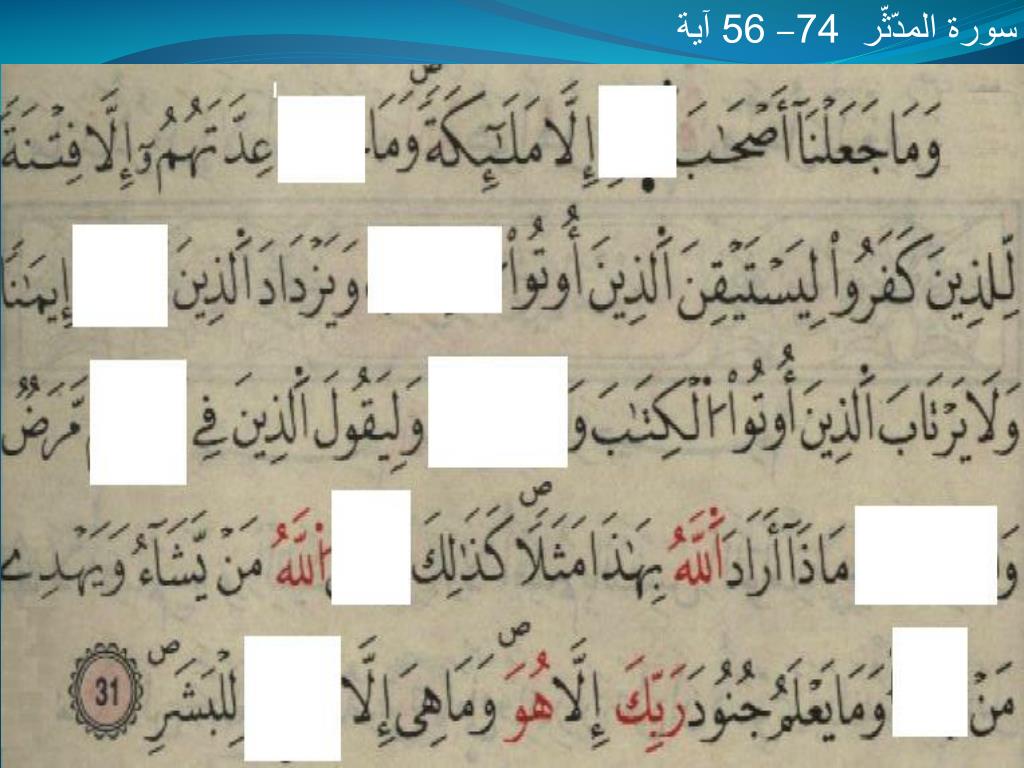 سورة المدّثّر 74– 56 آية
وَمَا جَعَلْنَا أَصْحَٰبَ إِلَّا مَلَٰٓئِكَةً وَمَا عِدَّتَهُمُۥٓ إِلَّا فِتْنَةً
لِّلذِينَ كَفَرُواْ لِيَسْتَيْقِنَ اَلذِينَ أُوتُواْ وَيَزْدَادَ اَلذِينَ إِيمَٰنًا
وَلَا يَرْتَابَ اَلذِينَ أُوتُواْ اُلْكِتَٰبَ وَ وَلِيَقُولَ اَلذِينَ فِے مَّرَضٌ
وَ مَاذَآ أَرَادَ اَللَّهُ بِهَٰذَا مَثَلًا كَذَٰلِكَ اُللَّهُ مَنْ يَّشَآءُ وَيَهْدِے
مَنْ وَمَا يَعْلَمُ جُنُودَ رَبِّكَ إِلَّا هُوَ وَمَا هِىَ إِلَّا لِلْبَشَرِ 31